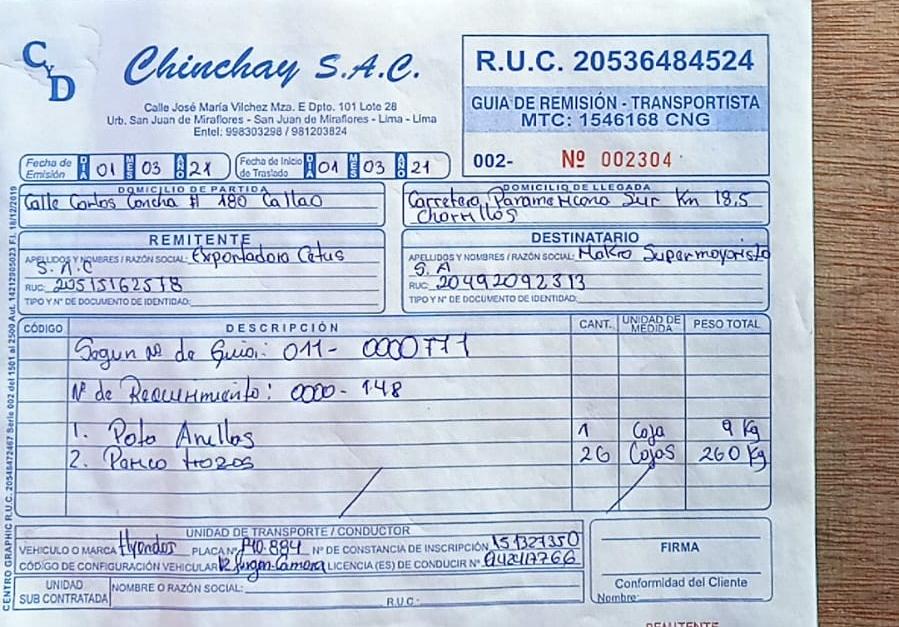 CyD
Chinchay S.A.C.
Calle José María Vilchez Mza. E Dpto. 101 Lote 28
Urb. San Juan de Miraflores - San Juan de Miraflores - Lima - Lima
Entel: 998303298 / 981203824
R.U.C. 20536484524
GUIA DE REMISIÓN - TRANSPORTISTA
MTC: 1546168 CNG
002- Nº 002304
Fecha de Emisión DIA 01 MES 03 AÑO 21
Fecha de Inicio de Traslado DIA 01 MES 03 AÑO 21
DOMICILIO DE PARTIDA
Calle Carlos Concha # 180 Callao
DOMICILIO DE LLEGADA
Carretera Panamericana Sur Km 18.5
Chorrillos
REMITENTE
APELLIDOS Y NOMBRES / RAZÓN SOCIAL: Exportadora Cetus
S.A.C
RUC: 20515162578
TIPO Y Nº DE DOCUMENTO DE IDENTIDAD:
DESTINATARIO
APELLIDOS Y NOMBRES / RAZÓN SOCIAL: Makro Supermayorista
S.A
RUC: 20492092313
TIPO Y Nº DE DOCUMENTO DE IDENTIDAD:
CÓDIGO DESCRIPCIÓN CANT. UNIDAD DE MEDIDA PESO TOTAL
Segun Nº de Guia: 011- 0000771
Nº de Requerimiento: 0000-148
1. Pota Anillos 1 Caja 9 Kg
2. Perico trozos 26 Cajas 260 Kg
UNIDAD DE TRANSPORTE / CONDUCTOR
VEHICULO O MARCA PLACA Nº Nº DE CONSTANCIA DE INSCRIPCIÓN 151327350
CÓDIGO DE CONFIGURACIÓN VEHICULAR LICENCIA (ES) DE CONDUCIR Nº
UNIDAD SUB CONTRATADA NOMBRE O RAZÓN SOCIAL:
R.U.C.
FIRMA
Conformidad del Cliente
Nombre:
REMITENTE
CENTRO GRAPHIC R.U.C. 20548472467 Serie 002 del 1501 al 2500 Aut. 14212905023 F.I. 18/12/2019